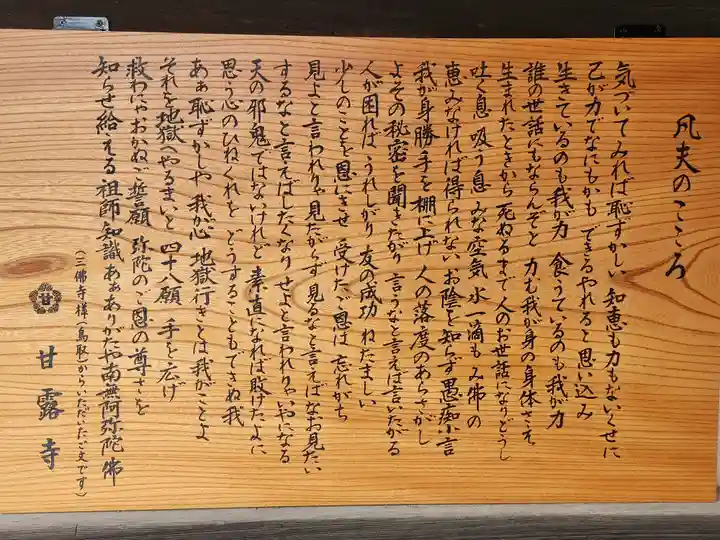 凡夫のこころ
気づいてみれば恥ずかしい 知恵も力もないくせに
己が力でなにもかも できるやれると思い込み
生きているのも我が力 食うているのも我が力
誰の世話にもならんぞと 力む我が身の身体さえ
生まれたときから死ぬるまで 人のお世話になりどうし
吐く息 吸う息 みな空気 水一滴も み佛の
恵みなければ得られない お陰を知らず愚痴小言
我が身勝手を棚に上げ 人の落度のあらさがし
よその秘密を聞きたがり 言うなと言えば言いたがる
人が困れば うれしがり 友の成功 ねたましい
少しのことを恩にきせ 受けたご恩は 忘れがち
見よと言われりゃ見たがらず 見るなと言えばなお見たい
するなと言えばしたくなり せよと言われりゃいやになる
天の邪鬼ではないけれど 素直になれば敗けたよに
思う心のひねくれを どうすることもできぬ我
あぁ恥ずかしや我が心 地獄行きとは我がことよ
それを地獄へやるまいと 四十八願 手を広げ
救わにゃおかぬご誓願 弥陀のご恩の尊さを
知らせ給える 祖師知識 あぁありがたや南無阿弥陀佛
（三佛寺様（鳥取）からいただいたご文です）
甘
甘露寺